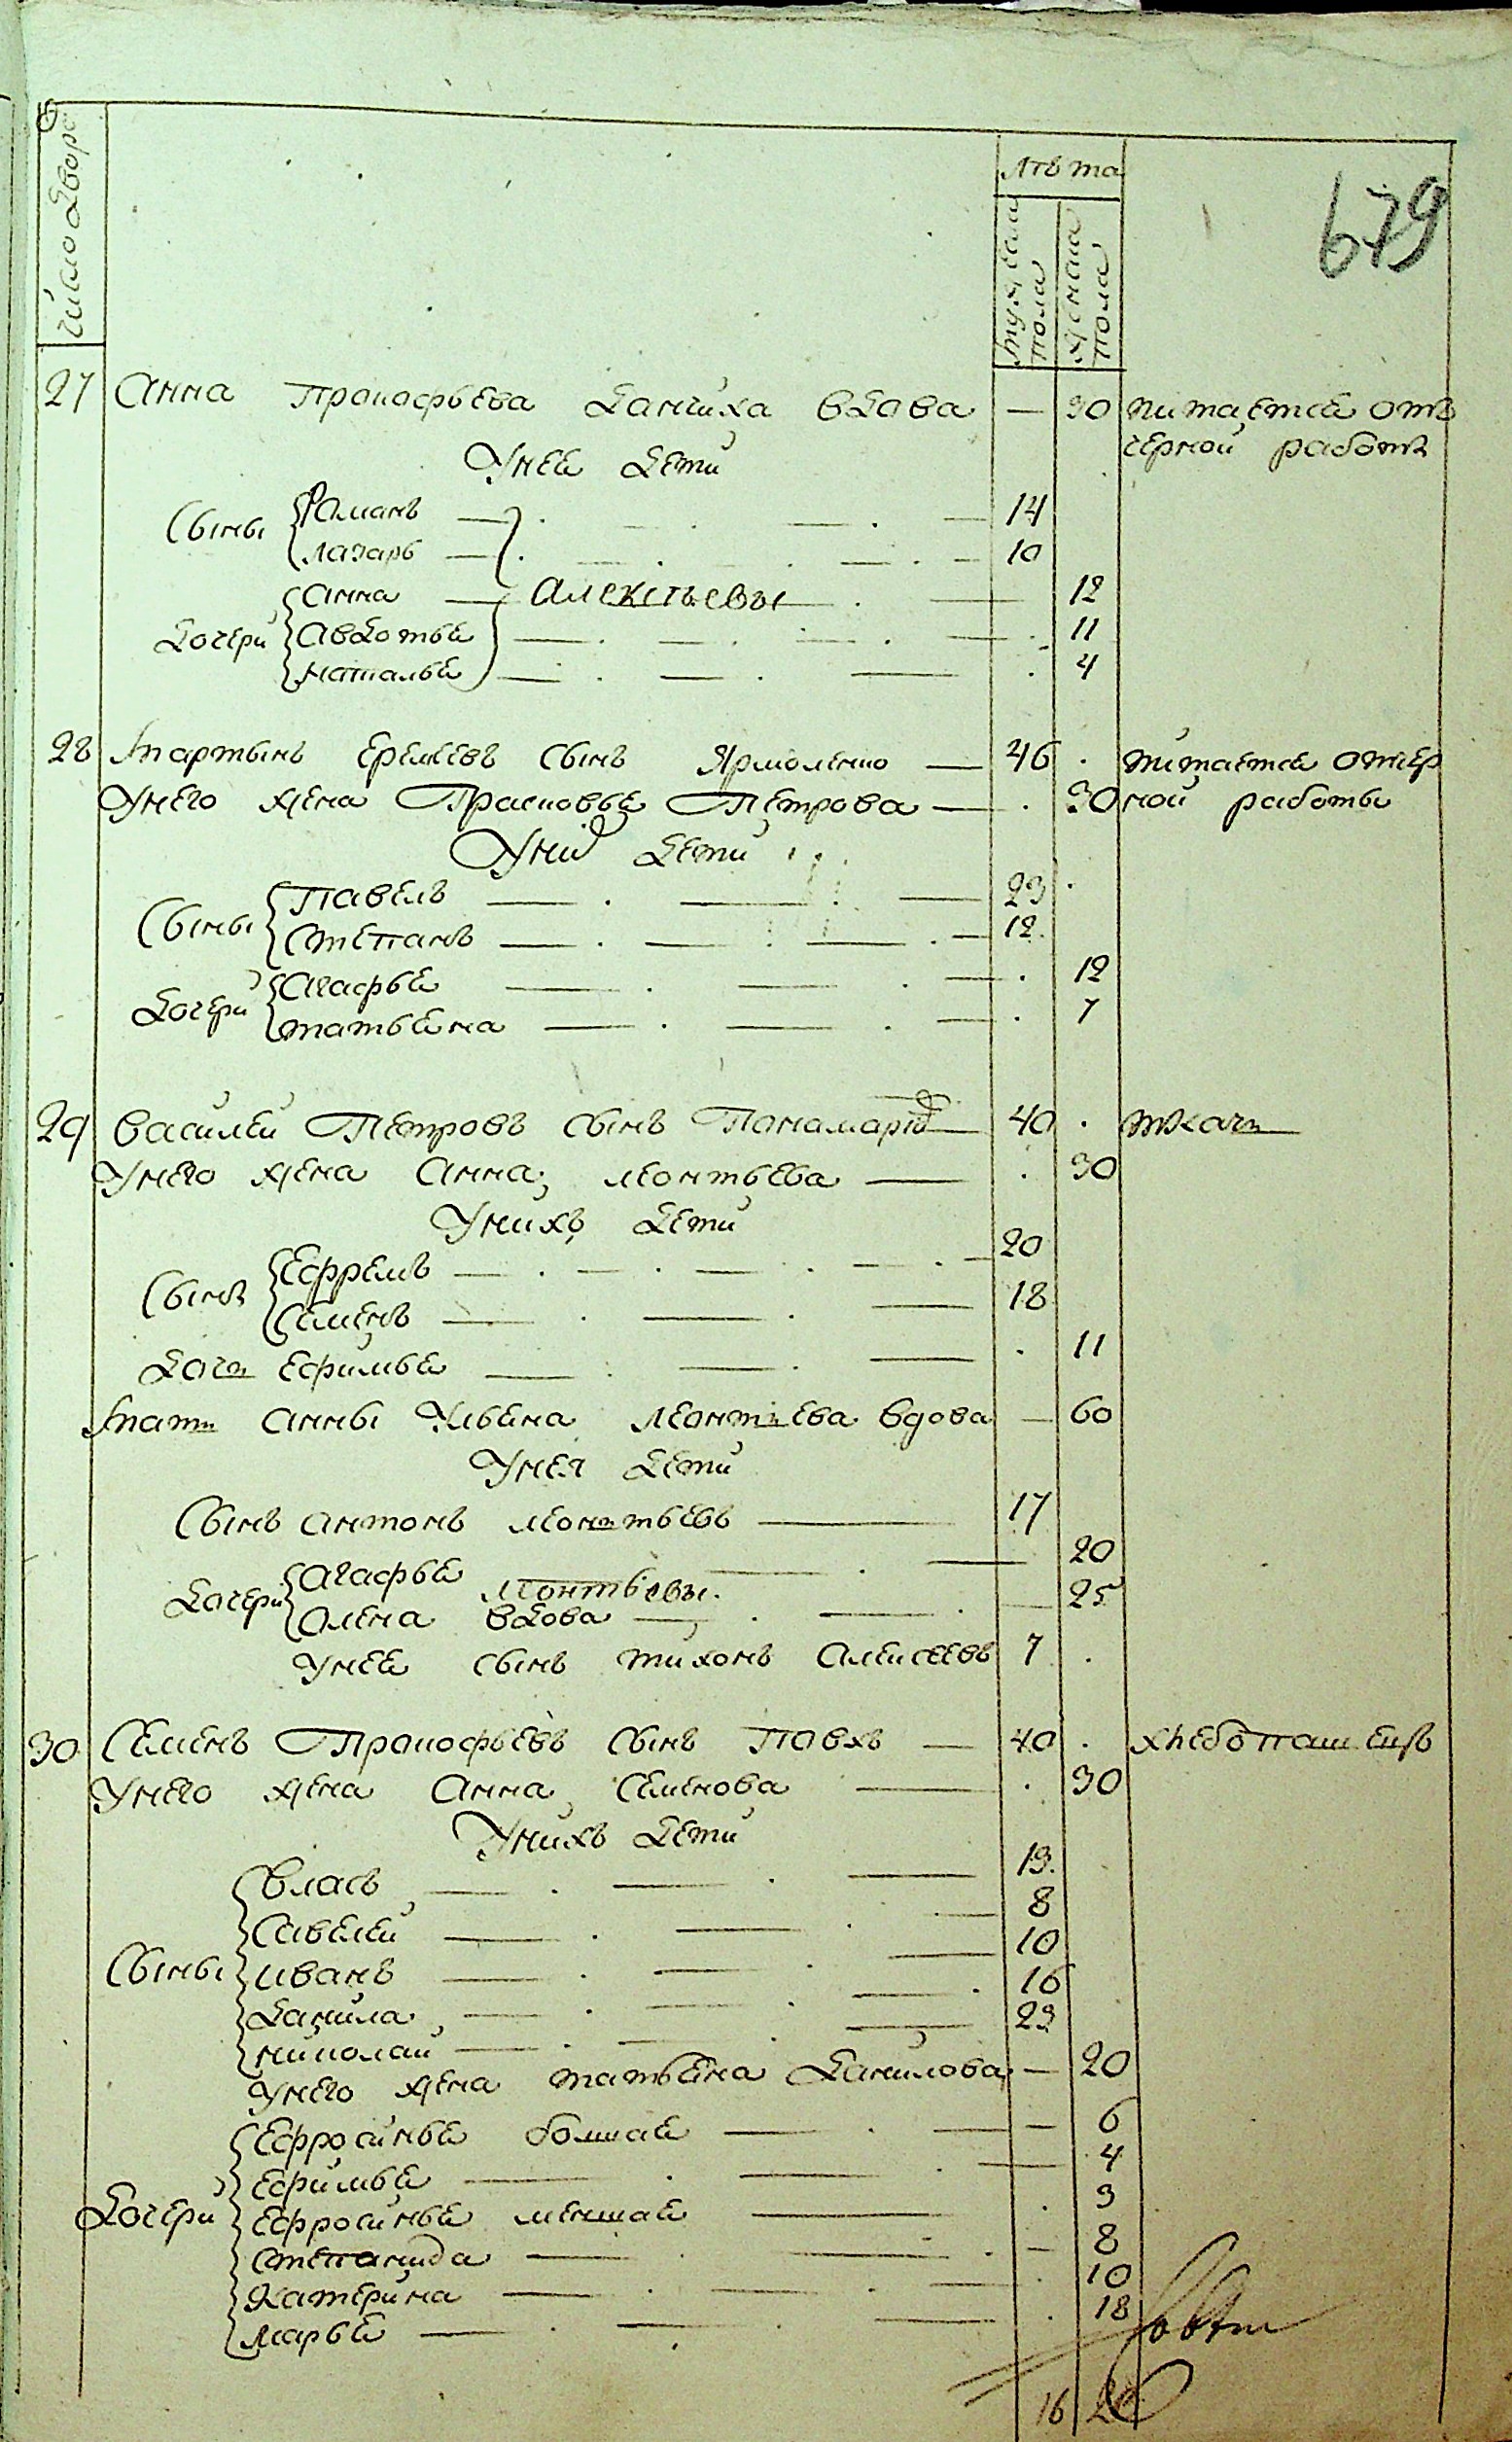 число дворо
Лѣта
мужска пола
женска пола
679
27 Анна Прокофьева Данчиха вдова — 30 питается отъ
черной работы
У нее дети
Сыны Романъ — 14
Лазарь — 10
Анна — Алексѣевы 12
Дочери Авдотья 11
Наталья 4
28 Мартынъ Еремеевъ сынъ Ярмоленко — 46 питается отчер
У него жена Прасковья Петрова — 30 ной работы
У них дети
Сыны Павелъ — 23
Степанъ — 12
Дочери Агафья — 12
Татьяна — 7
29 Василей Петровъ сынъ Понамарιов — 40 ткачь
У него жена Анна Леонтьева — 30
У нихъ дети
Сынъ Ефремъ — 20
Семенъ — 18
Дочь Ефимья — 11
Мать Анны Ульяна Леонтьева вдова — 60
У нея дети
Сынъ Антонъ Леонтьевъ — 17
Дочери Агафья — 20
Леонтьевы.
Олена вдова — 25
У нее сынъ Тихонъ Алексеевъ 7
30 Семенъ Прокофьевъ сынъ Павхъ — 40 хлебопашецъ
У него жена Анна Семенова — 30
У нихъ дети
Власъ — 13
Савелей — 8
Сыны Иванъ — 10
Данила — 16
Николай — 23
У него жена Татьяна Данилова — 20
Ефросинья болшая — 6
Ефимья — 4
Дочери Ефросинья меншая — 3
Степанида — 8
Катерина — 10
Марья — 18
16